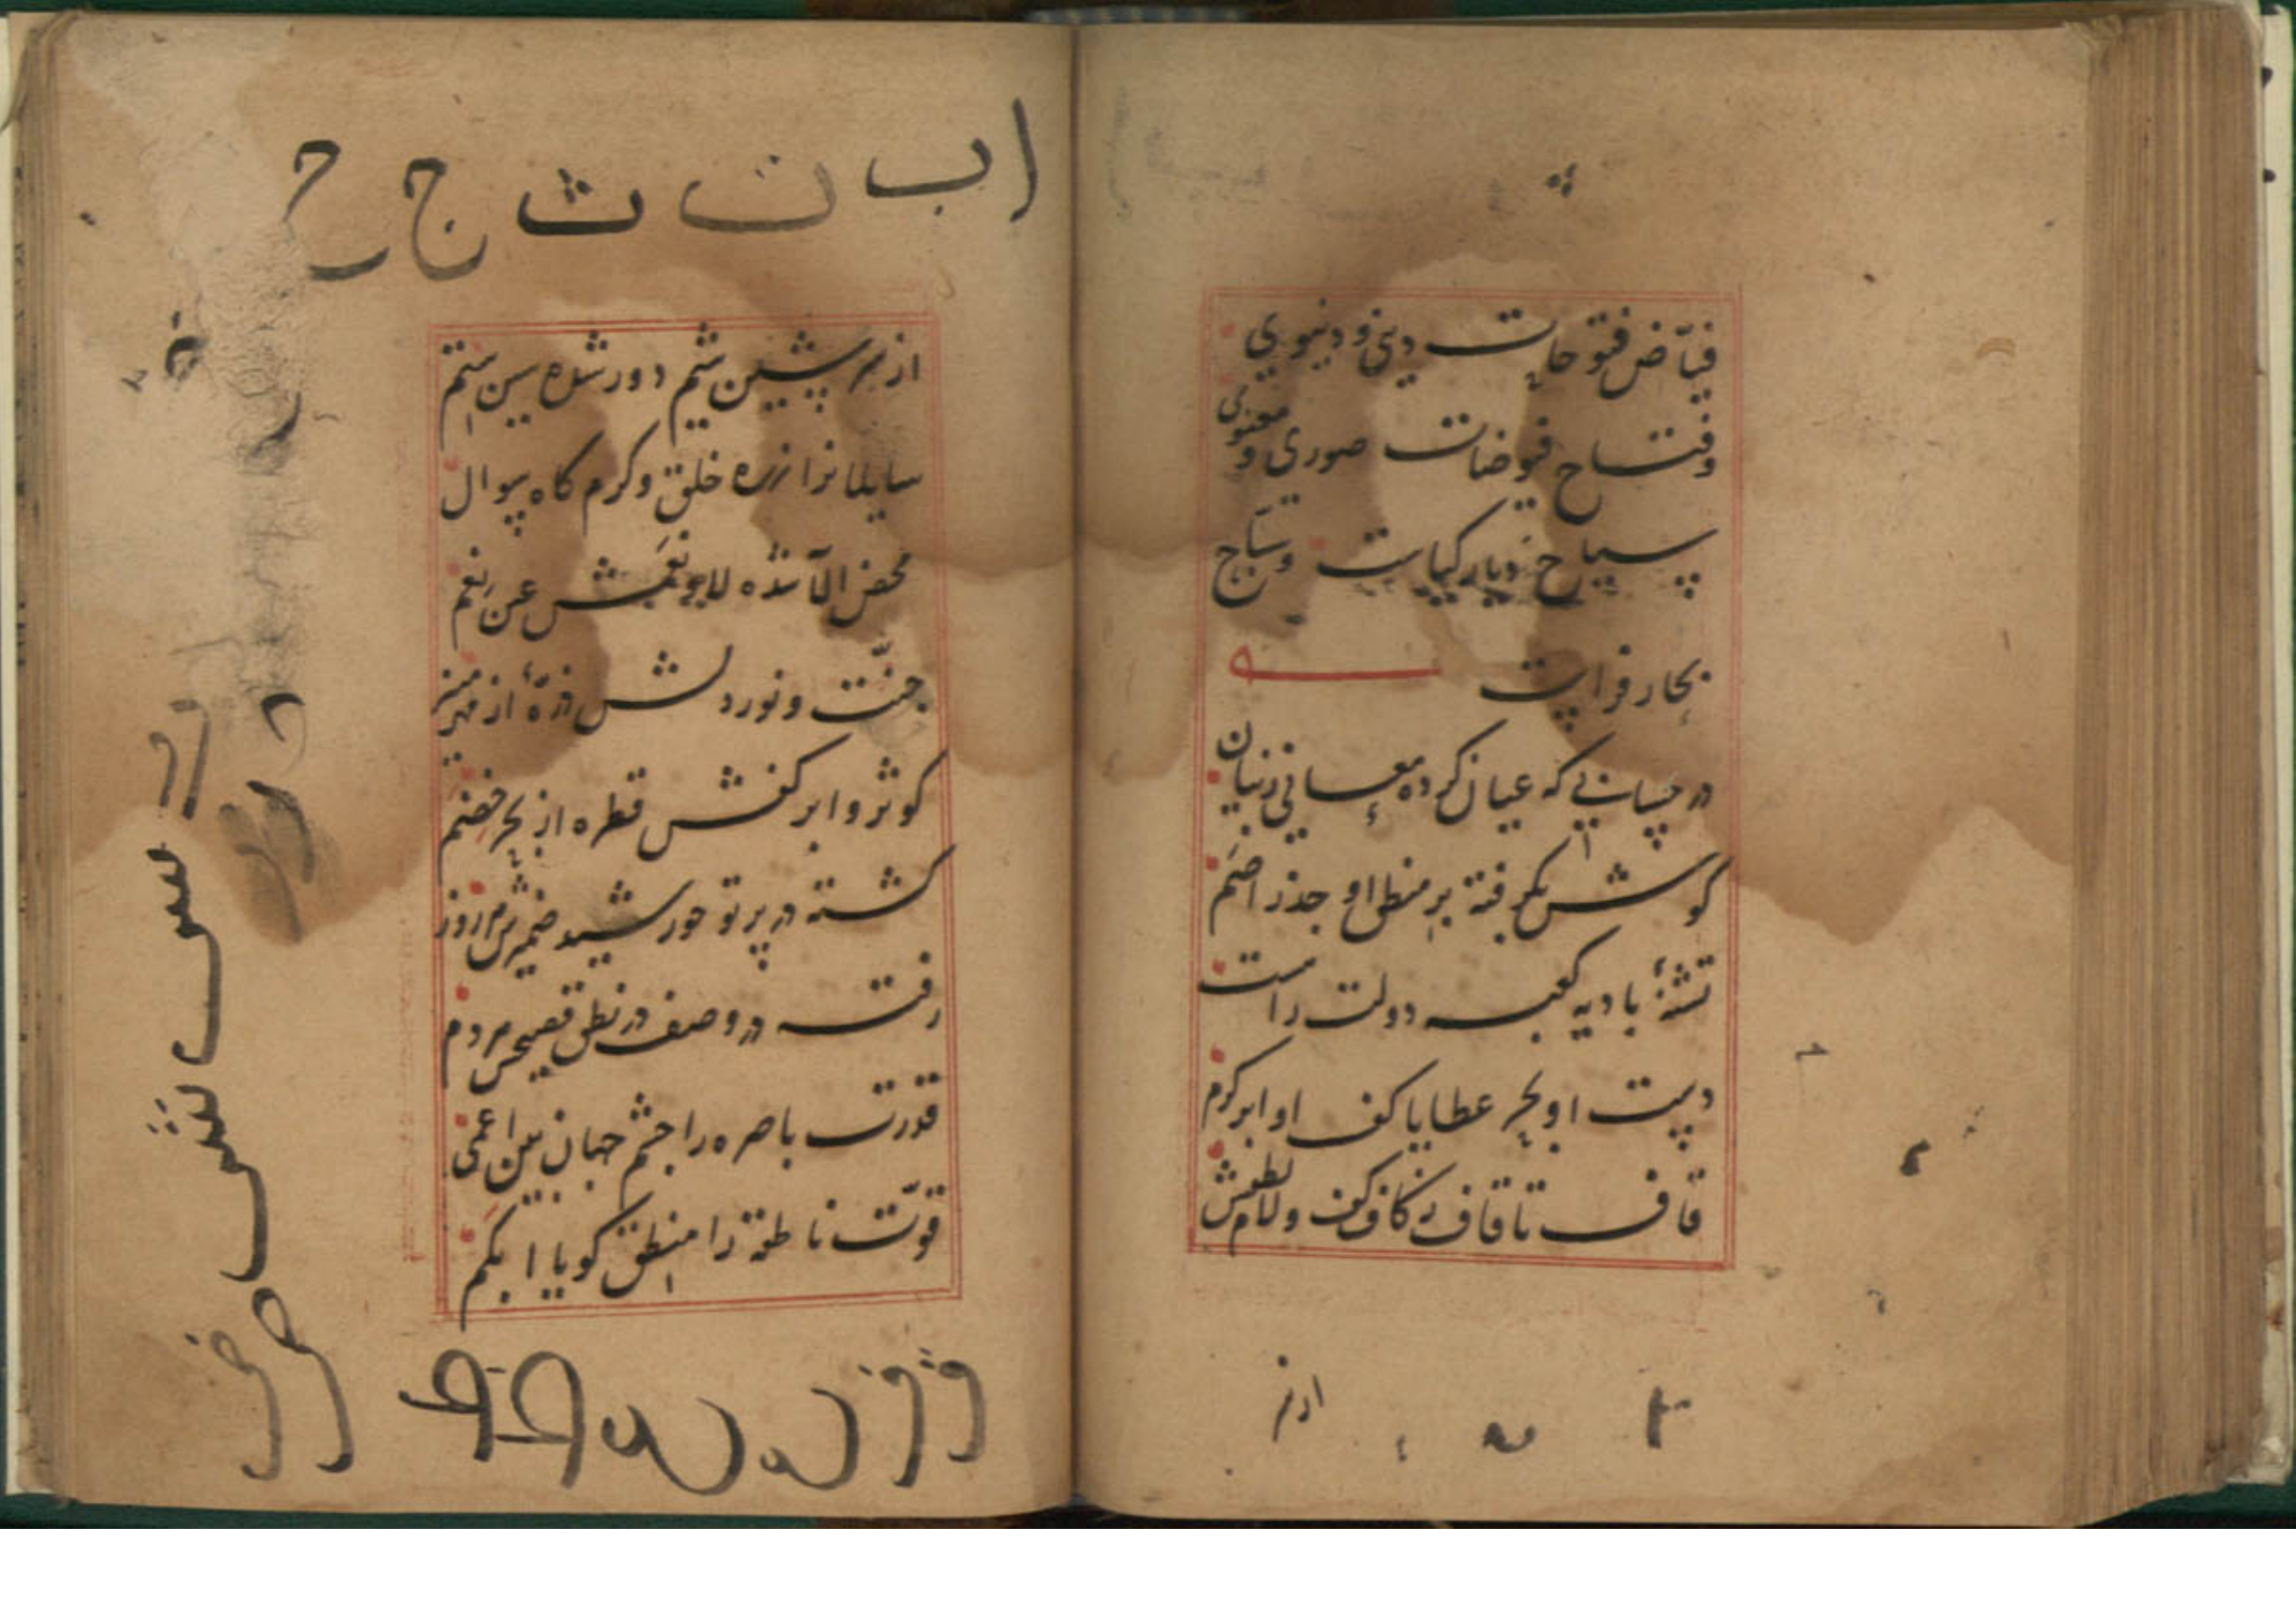 فیّاض فتوحات دینی و دنیوی
و فتاح فیوضات صوری و معنوی
سیاح دیار کیاست و سبّاح
بحار فراست
در لسانی که عیان کرده معانی ز بیان
کوش بکرفته بر منطق او جذر اصَم
تشنهٔ بادیه کعبه دولت راست
دست او بحر عطایا کف او ابر کرم
قاف تا قاف ز کاف کف و لام لطفش
از سر
ا ب ت ث ج ح
از سر شین شیم دور شده سین ستم
سایلانرا ز ره خلق و کرم کاه سوال
محض الا شده لا و نعمش عین نِعَم
جنّت و نور دلش ذرّهٔ از مهر منیر
کوثر و ابر کفش قطره از بحر خضم
کشته در پرتو خورشید ضمیرش روز
رفته در وصف در نطق فصیحش مردم
قدرت باصره را چشم جهان بین اعمی
قوّت ناطقه را منطق کویا ابکم
د
ر
س ش
ص ض